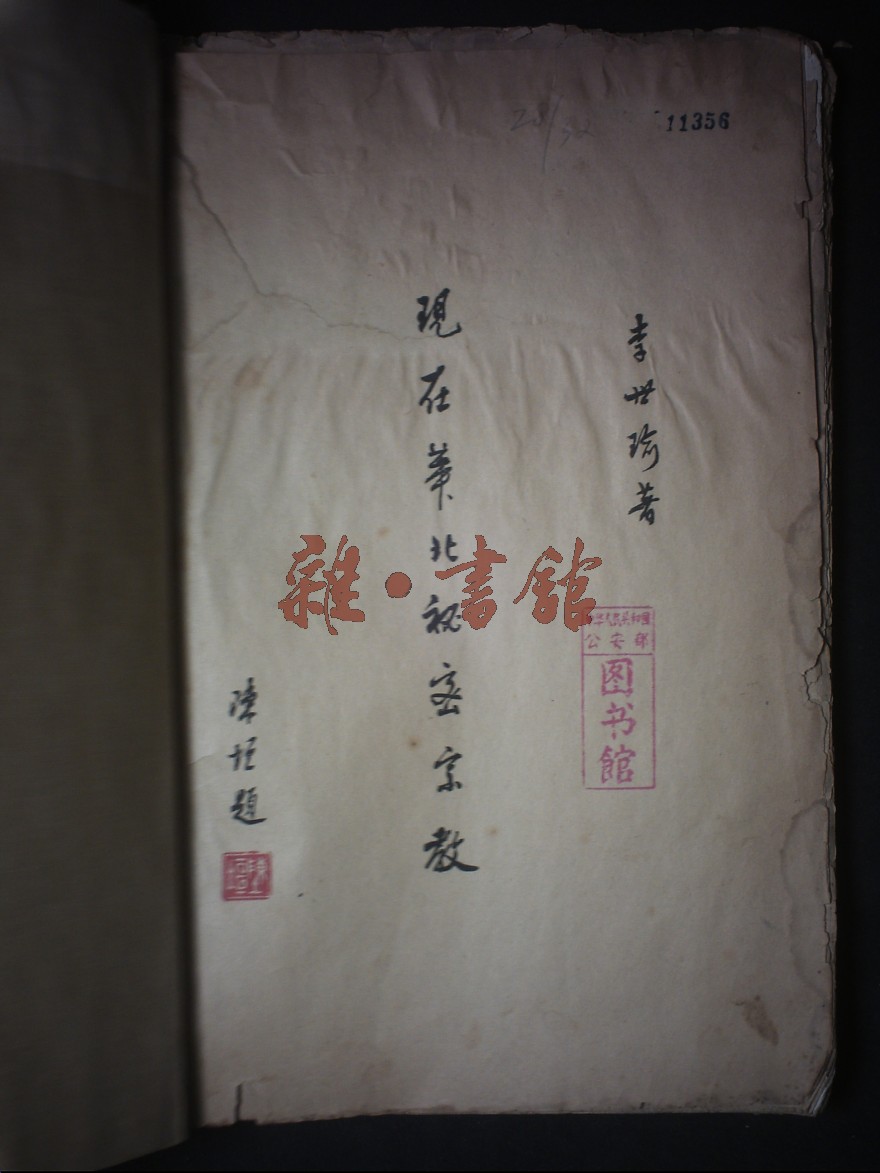 11356
李世瑜著
現在華北秘密宗教
陳垣題
陳垣
中华人民共和国
公安部
图书馆
雜·書館